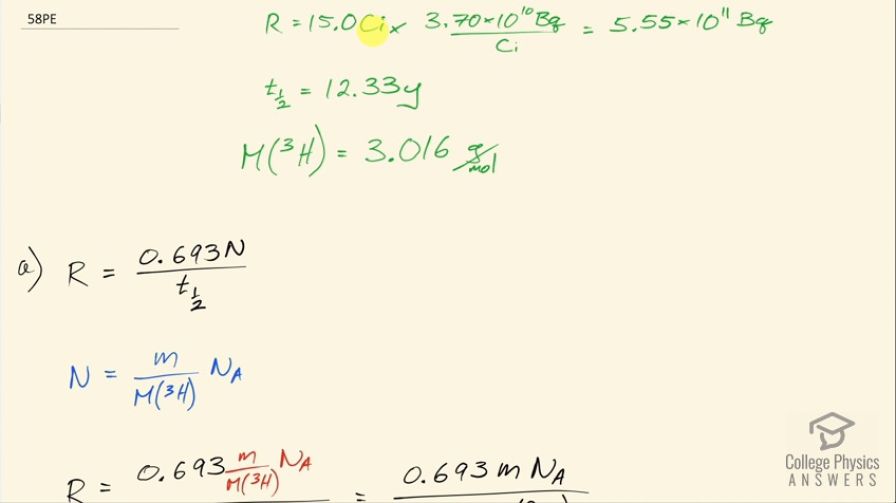 58PE
R = 15.0 Ci × 3.70×10¹⁰ Bq / Ci = 5.55×10¹¹ Bq
t½ = 12.33 y
M(³H) = 3.016 g/mol
a) R = 0.693N / t½
N = m / M(³H) N_A
R = 0.693 m / M(³H) N_A = 0.693 m N_A
College Physics
ANSWERS